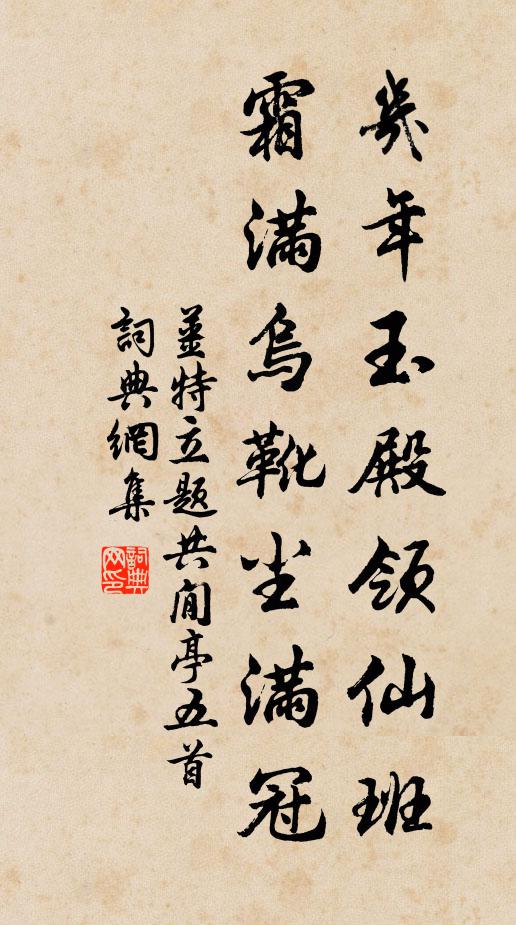 幾年玉殿領仙班
霜滿烏靴尘滿冠
薑特立題共閒亭五首
詞典網集
詞典网印